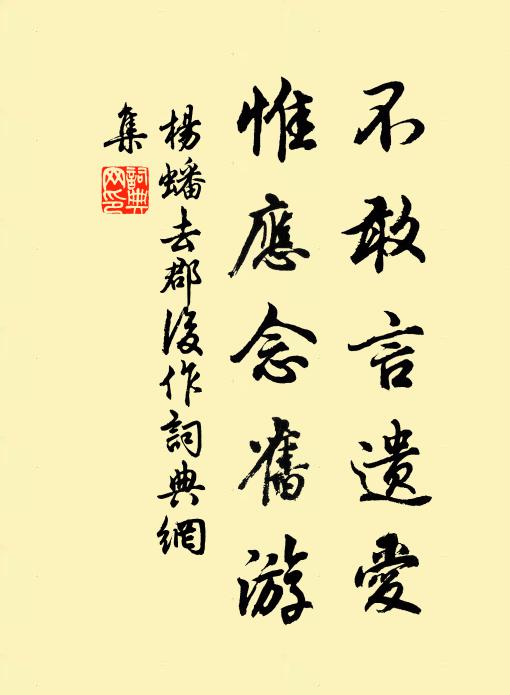 不敢言遺愛
惟應念舊游
楊蟠去郡後作詞典網
集
詞典網印